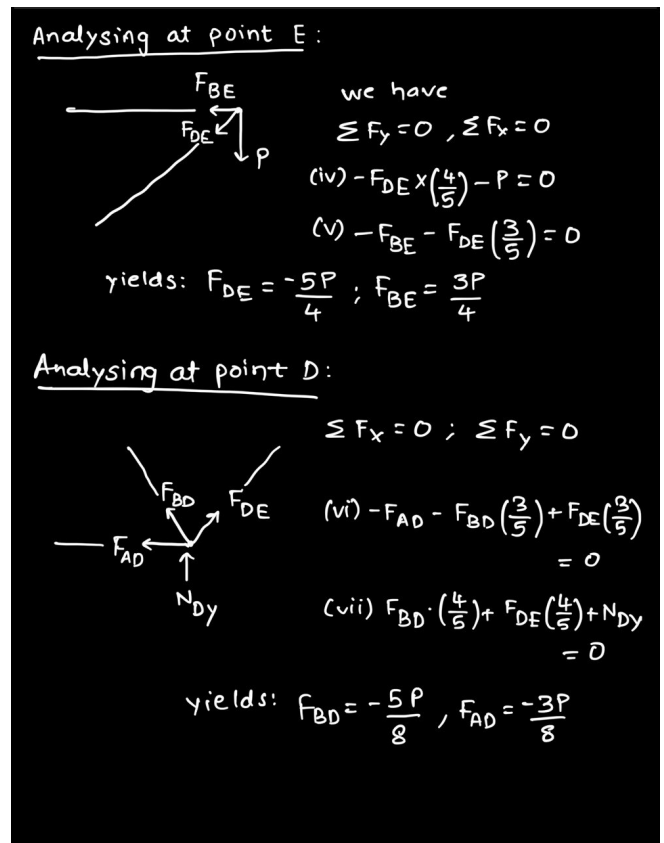 Analysing at point E:
F_BE
F_DE
P
we have
Σ Fy = 0 , Σ Fx = 0
(iv) - F_DE × (4/5) - P = 0
(v) - F_BE - F_DE (3/5) = 0
yields: F_DE = -5P/4 ; F_BE = 3P/4
Analysing at point D:
Σ Fx = 0 ; Σ Fy = 0
F_BD
F_DE
F_AD
N_Dy
(vi) - F_AD - F_BD (3/5) + F_DE (3/5)
= 0
(vii) F_BD · (4/5) + F_DE (4/5) + N_Dy
= 0
yields: F_BD = -5P/8 , F_AD = -3P/8